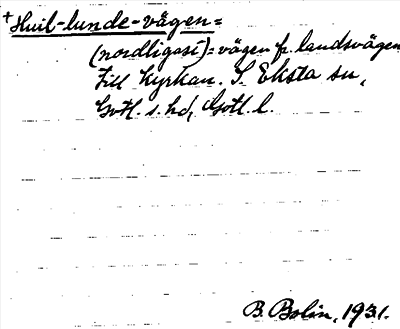 +Huil-lunde-vägen=
(nordligast)=vägen fr. landsvägen
till kyrkan. I Eksta sn,
Gotl. s. hd, Gotl. l.
B. Bolin, 1931.